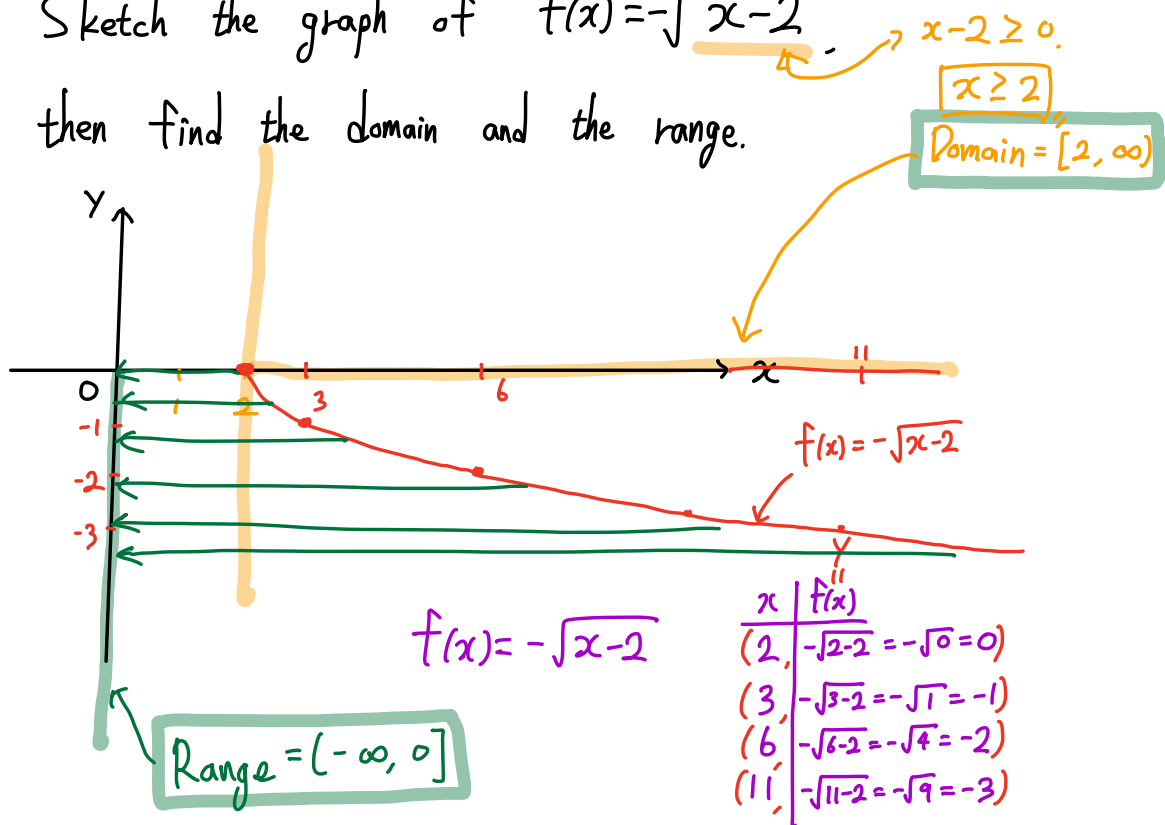 Sketch the graph of f(x)=-√x-2.
then find the domain and the range.
x-2≥0.
x≥2
Domain=[2,∞)
Y
0
1
2
3
6
x
11
-1
-2
-3
f(x)=-√x-2
f(x)=-√x-2
Y
"
x f(x)
(2, -√2-2=-√0=0)
(3, -√3-2=-√1=-1)
(6, -√6-2=-√4=-2)
(11, -√11-2=-√9=-3)
Range=(-∞,0]